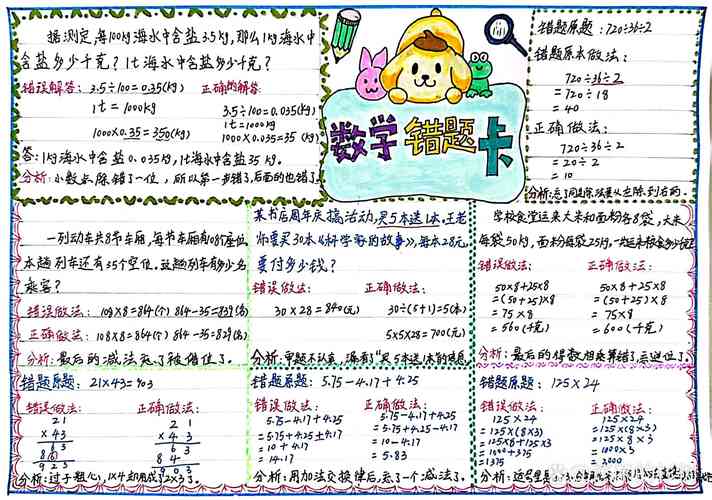 据测定,每100kg海水中含盐3.5kg,那么1kg海水中
含盐多少千克?1t海水中含盐多少千克?
错误解答:3.5÷100=0.35(kg)
1t=1000kg
1000×0.35=350(kg)
正确的解答
3.5÷100=0.035(kg)
1t=1000kg
1000×0.035=35(kg)
答:1kg海水中含盐0.035kg,1t海水中含盐35kg。
分析:小数点除错了一位,所以第一步错了,后面的也错了
数学错题卡
错题原题:720÷36÷2
错题原本做法:
720÷36÷2
=720÷18
=40
正确做法:
720÷36÷2
=20÷2
=10
分析:忘了同是除效要从左除到右
一列动车共8节车厢,每节车厢有108个座位
本趟列车还有35个空位。这趟列车有多少名
乘客?
错误做法:108×8=864(个) 864-35=839(名)
正确做法:108×8=864(个) 864-35=829(名)
分析:最后的减法忘了被借位了。
某书店周年庆搞活动,买5本送1本。王老
师要买30本《好学的故事》,每本28元,
要付多少钱?
错误做法:
30×28=840(元)
正确做法:
30÷(5+1)=5(本)
5×5×28=700(元)
分析:审题不认真,漏看了"买5本送1本的信息
学校食堂运来大米和面粉各8袋,大米
每袋50kg,面粉每袋25kg。
错误做法:
50×8+25×8
=(50+25)×8
=75×8
=560(千克)
正确做法:
50×8+25×8
=(50+25)×8
=75×8
=600(千克)
分析:最后的得数相乘算错了,忘进位了。
错题原题:21×43=903
错误做法:
21
×43
63
86
923
正确做法:
21
×43
63
84
903
分析:过于粗心,1×4却用成了2×3了。
错题原题:5.75-4.17+4.25
错误做法:
5.75-4.17+4.25
=5.75+4.25+4.17
=10+4.17
=14.17
正确做法:
5.75-4.17+4.25
=5.75+4.25-4.17
=10-4.17
=5.83
分析:用加法交换律后,忘了一个减法了。
错题原题:125×24
错误做法:
125×24
=125×(8×3)
=125×8+125×3
=1000+375
=1375
正确做法:
125×24
=125×(8×3)
=125×8×3
=1000×3
=3000